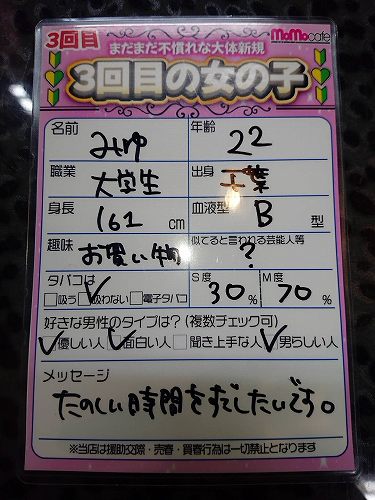 3回目
MoMo cafe
まだまだ不慣れな大体新規
3回目の女の子
名前 みゆ 年齢 22
職業 大学生 出身 千葉
身長 161 cm 血液型 B 型
趣味 お買い物 似てると言われる芸能人等 ?
タバコは S度 M度
吸う 吸わない 電子タバコ 30% 70%
好きな男性のタイプは?(複数チェック可)
優しい人 面白い人 聞き上手な人 男らしい人
メッセージ
たのしい時間をすごしたいです。
※当店は援助交際・売春・買春行為は一切禁止となります